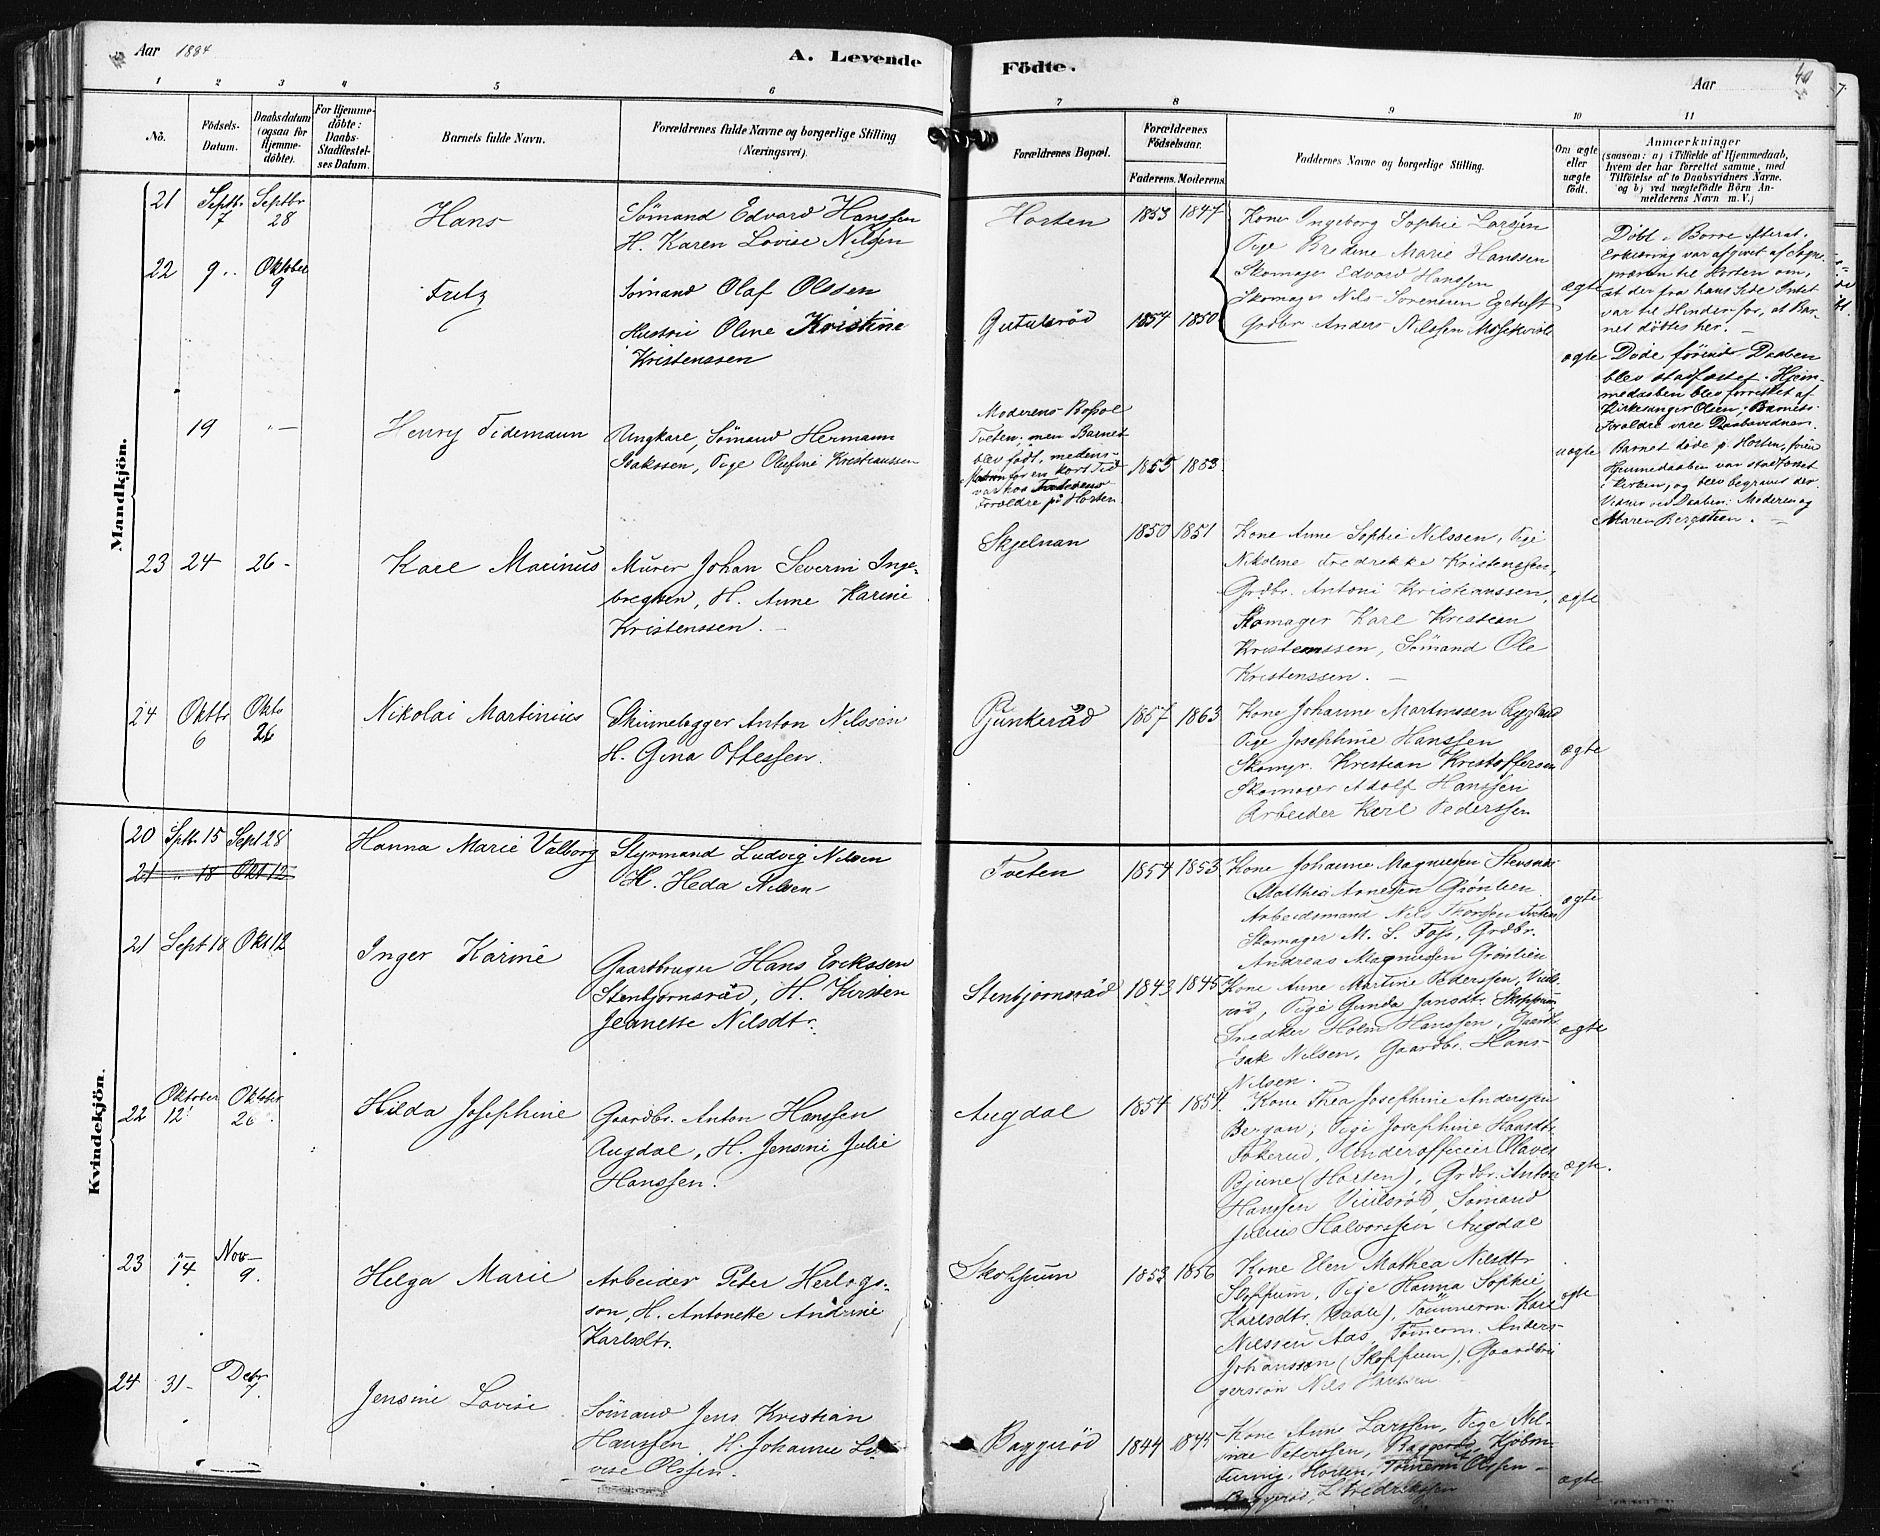 Aar 1884
A. Levende
Födte.
Aar
40
1 2 3 4 5 6 7 8 9 10 11
Nö.
Födsels-
Datum.
Daabsdatum
(ogsaa for
Hjemme-
döbte).
For Hjemme-
döbte:
Daabs-
Stadfæstel-
ses Datum.
Barnets fulde Navn.
Forældrenes fulde Navne og borgerlige Stilling
(Næringsvei).
Forældrenes Bopæl.
Forældrenes
Födselsaar.
Faderens. Moderens.
Faddernes Navne og borgerlige Stilling.
Om ægte
eller
uægte
födt.
Anmærkninger
(saasom: a) i Tilfælde af Hjemmedaab,
hvem der har forrettet samme, med
Tilföielse af to Daabsvidners Navne.
og b) ved uægtefödte Börn An-
melderens Navn m. V.)
Mandkjön.
21 Septbr. 7 Septbr 28
Hans
Sømand Edvard Hanssen
H. Karen Lovise Nilsen
Horten 1853 1847
Kone Ingeborg Sophie Larssen
Pige Bredine Marie Hanssen
Skomager Edvard Hanssen
Skomager Nils Sørensen
Grdbr Anders Nilssen
ægte
Døbt i Borre efterat
Erklæring var afgivet af Sogne-
præsten til Horten om,
at der fra hans Side Intet
var til Hinder for, at Bar-
net døbtes her. —
22 9 Oktober 9
Fritz
Sømand Olaf Olssen
Hustru Oline Kristine
Kristenssen
Gutulsrød 1854 1850
ægte
Døde førend Daaben
blev stadfæstet. Hjem-
medaaben blev forrettet af
Kirkesanger Olsen; Barnets
Forældre vare Daabsvidner.
19 " —
Henry Tidemann
Ungkarl, Sømand Hermann
Isakssen, Pige Olufine Kristianssen
Moderens Bopæl
Tveten, men Barnet
blev født, medens
Moderen for en kort Tid
var hos Faderens
Forældre på Horten
1855 1853
uægte
Barnet døde p. Horten, førend
Hjemmedaaben var stadfæstet
i Kirken, og blev begravet der
Vidner ved Daaben: Moderen og
Maren Bergsteen. —
23 24 26 -
Karl Marinus
Murer Johan Severin Inge-
bregtsen, H. Anne Karine
Kristenssen. —
Skjelnan 1850 1851
Kone Anne Sophie Nilssen, Pige
Nikoline Fredrikke Kristenssen,
Grdbr. Antoni Kristianssen,
Skomager Karl Kristian
Kristenssen, Sømand Ole
Kristenssen. —
ægte
24 Oktbr 6 Oktb 26
Nikolai Martinius
Skinnelægger Anton Nilssen
H. Gina Ottessen.
Pjunkerød 1857 1863
Kone Johanne Martinssen Rygland
Pige Josephine Hanssen
Skomgr. Kristian Kristoffersen
Skomager Adolf Hanssen
Arbeider Karl Pederssen
ægte
Kvindekjön.
20 Sptb. 15 Sept 28
Hanna Marie Valborg
Styrmand Ludvig Nilsen
H. Heda Nilsen
Tveten 1854 1853
Kone Johanne Magnussen
Mathea Arnessen Grønlien
Arbeidsmand Nils Thorsen Tveten
Skomager M. S. Foss, Grdbr.
Andreas Magnussen Grønlien
ægte
21 " 18 Okt 12
21 Sept 18 Okt 12
Inger Karine
Gaardbruger Hans Erikssen
Stenbjørnsrød, H. Kirsten
Jeanette Nilsdtr.
Stenbjørnsrød 1843 1845
Kone Anne Martine Pederssen, Viuls-
rød, Pige Gunda Jansdtr. Skoppum,
Snedker Holm Hanssen, Gaardb.
Isak Nilsen, Gaardbr. Hans
Nilsen. —
ægte
22 Oktober 12 Oktober 26
Hilda Josephine
Gaardbr. Anton Hanssen
Augdal, H. Jensine Julie
Hanssen.
Augdal 1854 1854
Kone Thea Josephine Anderssen
Bergan, Pige Josephine Hansdtr
Fokerud, Underofficier Olaves
Bjune (Horten), Grdbr. Anton
Hanssen Viulsrød, Sømand
Julius Halvorssen Augdal
ægte.
23 14 Nov 9.
Helga Marie
Arbeider Peter Herlogs-
son, H. Antonette Andrine
Karlsdtr.
Skoppum 1853 1856
Kone Elen Mathea Nilsdtr
Skoppum, Pige Hanna Sophie
Karlsdtr. (Vaale), Tømmerm. Karl
Nilssen Aas, Tømerm. Anders
Johansson (Skoppum), Gaardbru-
gersson Nils Hanssen —
ægte
24 31 - Debr 7.
Jensine Lovise
Sømand Jens Kristian
Hanssen, H. Johanne Lo-
vise Olssen.
Baggerød 1844 1845
Kone Anne Larssen, Pige Nil-
sine Peterssen, Baggerød, Kjøbm.
Horten, Tømerm. Olssen -
Baggerød, L. Fredrikssen
ægte